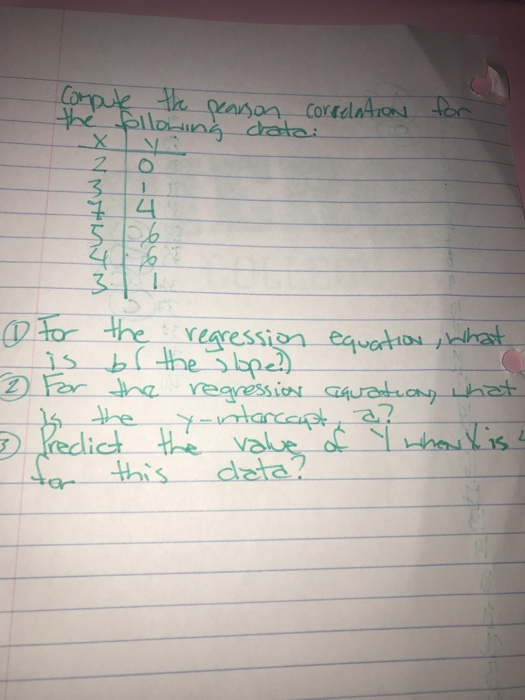 Compute the pearson correlation for
the following data:
X Y
2 0
3 1
7 4
5 6
4 6
3 1
① For the regression equation, what
is b ( the slope?)
② For the regression equation, what
is the y-intercept, a?
③ Predict the value of Y when X is
for this data?